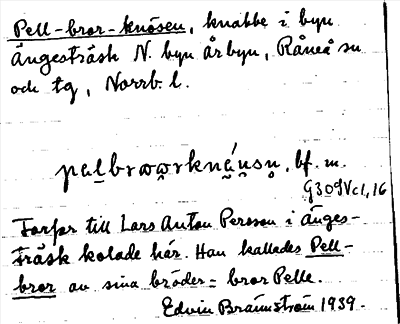 Pell-bror-knösen, knabbe i byn
Ängesträsk N. byn Årbyn, Råneå sn
och tg, Norrb. l.
bf. m.
G309Vc1,16
Farfar till Lars Anton Persson i Änges-
träsk kolade här. Han kallades Pell-
bror av sina bröder = bror Pelle.
Edvin Brännström 1939.